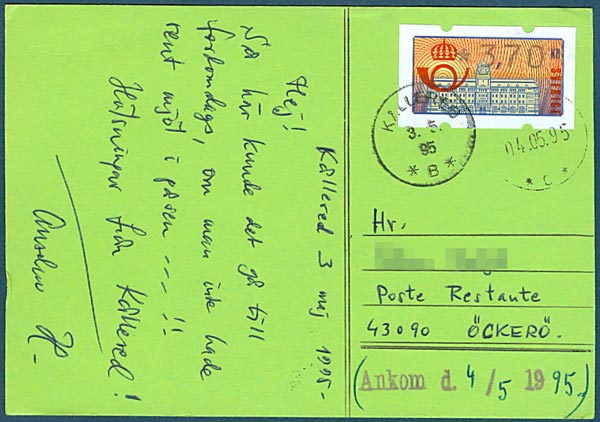 Kållered 3 maj 1995-
Hej!
Så här kunde det gå till
förbondags, om man inte hade
rent mjöl i påsen ---!!
Hälsningar från Kållered!
3,70
KÅLLERED
3. 5.
95
* B *
04.05.95
* C *
Hr.
Poste Restante
43090 ÖCKERÖ.
(Ankom d. 4/5 1995.)